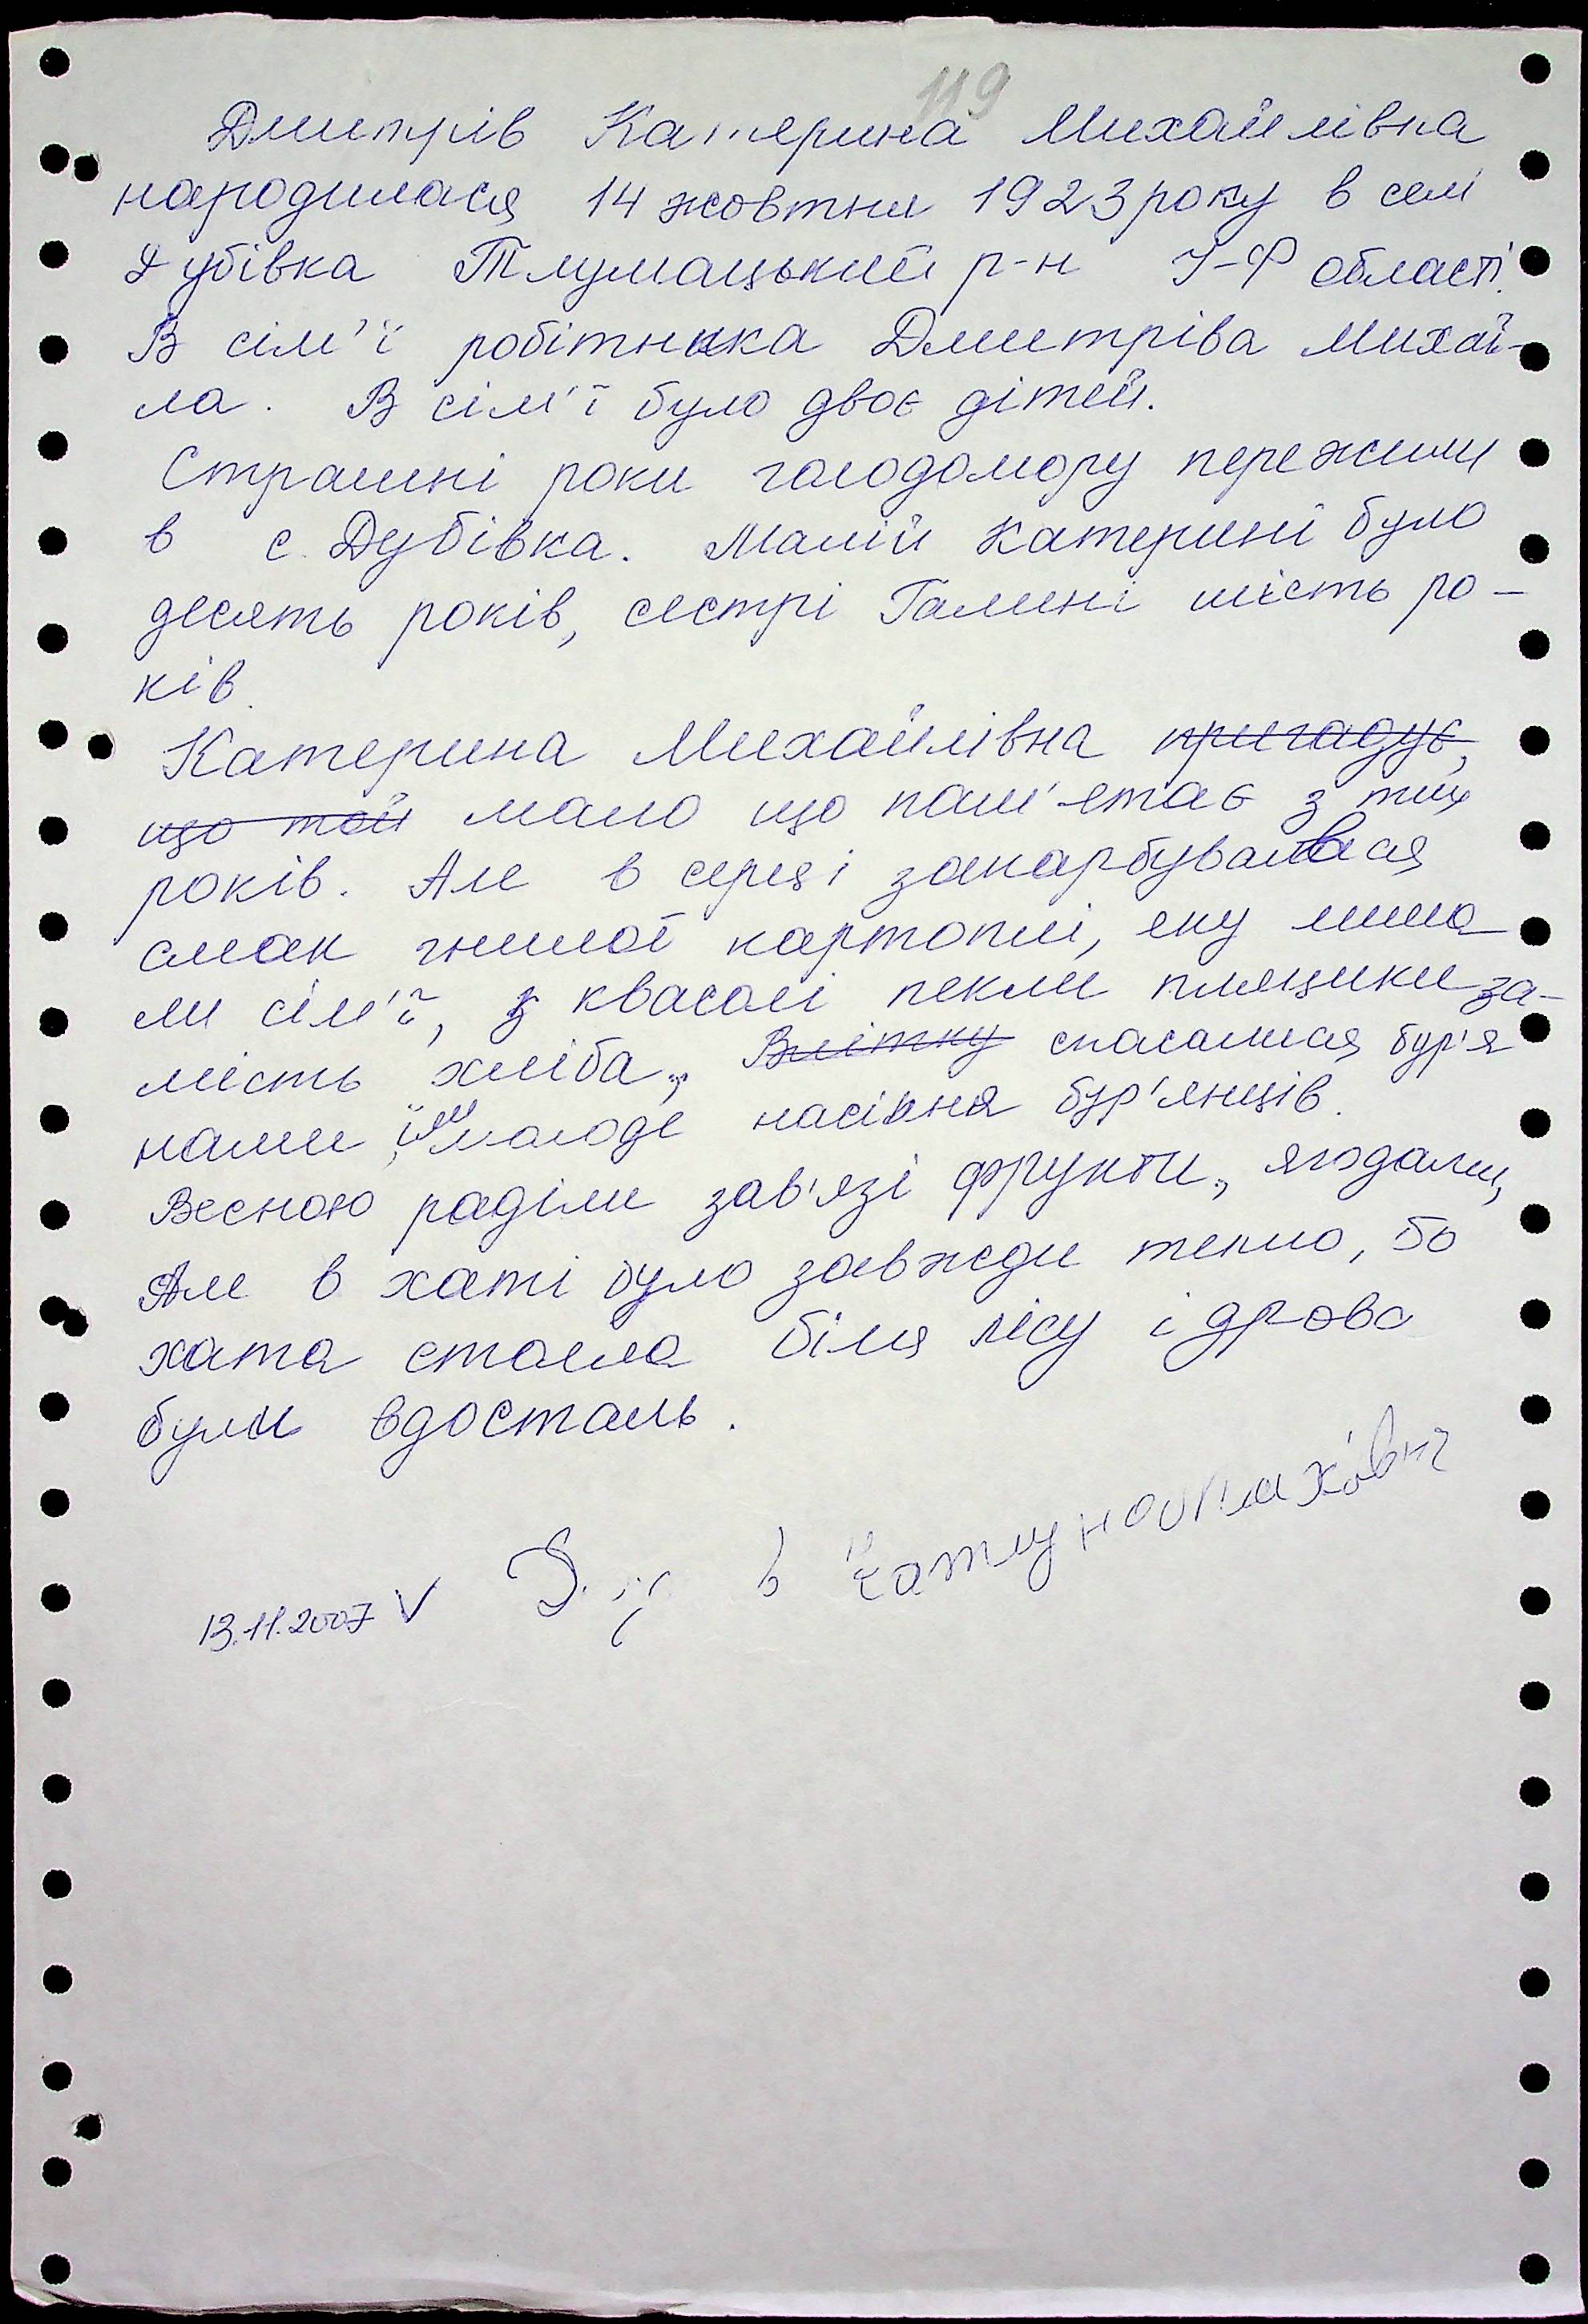 119
Дмитрів Катерина Михайлівна
народилася 14 жовтня 1923 року в селі
Дубівка Тлумацький р-н І-Ф області.
В сім'ї робітника Дмитріва Михай-
ла. В сім'ї було двоє дітей.
Страшні роки голодомору пережили
в с. Дубівка. Малій Катерині було
десять років, сестрі Галині шість ро-
ків.
Катерина Михайлівна пригадує,
що той мало що пам'ятає з тих
років. Але в серці закарбувався
смак гнилої картоплі, яку мима
ли сім'ї, з квасолі пекли пляцики за-
мість хліба, Влітку спасалися бур'я
нами, їли молоде насіння бур'янців.
Весною раділи зав'язі фрукти, ягодами,
Але в хаті було завжди тепло, бо
хата стояла біля лісу і дрова
були вдосталь.
13.11.2007 V